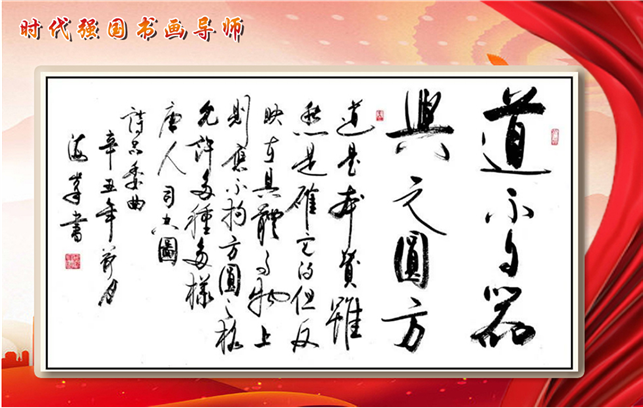 时代强国书画导师
道不自器
與之圓方
道是本質雖
然是確定的但反
映在具體事物上
則應不拘方圓之格
允許多種多樣
唐人司空圖
詩品委曲
辛丑年荷月
海峯書